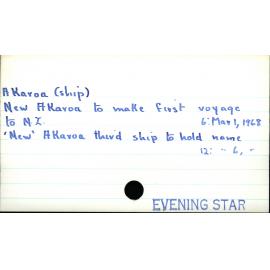 AKaroa (ship)
New AKaroa to make first voyage
to N.Z. 6: Mar 1, 1968
'New' AKaroa third ship to hold name
12: " 6, "
EVENING STAR